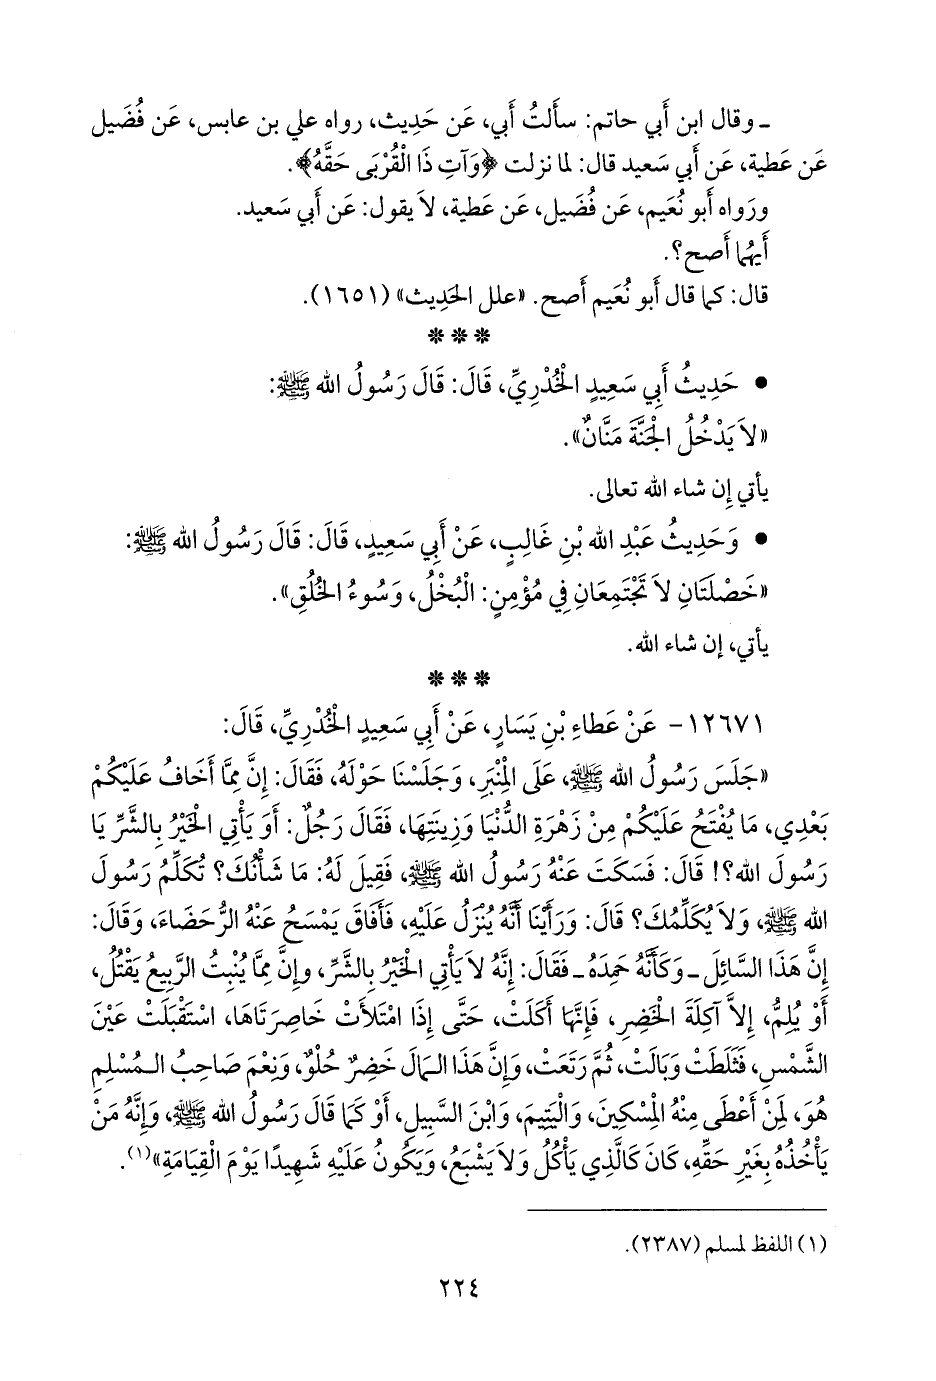 ـ وقال ابن أَبي حاتم: سأَلتُ أَبي، عَن حَدِيث، رواه علي بن عابس، عَن فُضَيل
عَن عَطية، عَن أَبي سَعيد قال: لما نزلت ﴿وَآتِ ذَا الْقُرْبَى حَقَّهُ﴾.
ورَواه أَبو نُعَيم، عَن فُضَيل، عَن عَطية، لاَ يقول: عَن أَبي سَعيد.
أَيهُما أَصح؟.
قال: كما قال أَبو نُعَيم أَصح. «علل الحَدِيث» (١٦٥١).
***
• حَدِيثُ أَبِي سَعِيدٍ الْخُدْرِيِّ، قَالَ: قَالَ رَسُولُ الله ﷺ:
«لاَ يَدْخُلُ الْجَنَّةَ مَنَّانٌ».
يأتي إِن شاء الله تعالى.
• وَحَدِيثُ عَبْدِ الله بْنِ غَالِبٍ، عَنْ أَبِي سَعِيدٍ، قَالَ: قَالَ رَسُولُ الله ﷺ:
«خَصْلَتَانِ لاَ تَجْتَمِعَانِ فِي مُؤْمِنٍ: الْبُخْلُ، وَسُوءُ الْخُلُقِ».
يأتي، إن شاء الله.
***
١٢٦٧١- عَنْ عَطَاءِ بْنِ يَسَارٍ، عَنْ أَبِي سَعِيدٍ الْخُدْرِيِّ، قَالَ:
«جَلَسَ رَسُولُ الله ﷺ، عَلَى الْمِنْبَرِ، وَجَلَسْنَا حَوْلَهُ، فَقَالَ: إِنَّ مِمَّا أَخَافُ عَلَيْكُمْ
بَعْدِي، مَا يُفْتَحُ عَلَيْكُمْ مِنْ زَهْرَةِ الدُّنْيَا وَزِينَتِهَا، فَقَالَ رَجُلٌ: أَوَ يَأْتِي الْخَيْرُ بِالشَّرِّ يَا
رَسُولَ الله؟! قَالَ: فَسَكَتَ عَنْهُ رَسُولُ الله ﷺ، فَقِيلَ لَهُ: مَا شَأْنُكَ؟ تُكَلِّمُ رَسُولَ
الله ﷺ، وَلاَ يُكَلِّمُكَ؟ قَالَ: وَرَأَيْنَا أَنَّهُ يُنْزَلُ عَلَيْهِ، فَأَفَاقَ يَمْسَحُ عَنْهُ الرُّحَضَاءَ، وَقَالَ:
إِنَّ هَذَا السَّائِلَ ـ وَكَأَنَّهُ حَمِدَهُ ـ فَقَالَ: إِنَّهُ لاَ يَأْتِي الْخَيْرُ بِالشَّرِّ، وَإِنَّ مِمَّا يُنْبِتُ الرَّبِيعُ يَقْتُلُ،
أَوْ يُلِمُّ، إِلاَّ آكِلَةَ الْخَضِرِ، فَإِنَّهَا أَكَلَتْ، حَتَّى إِذَا امْتَلأَتْ خَاصِرَتَاهَا، اسْتَقْبَلَتْ عَيْنَ
الشَّمْسِ، فَثَلَطَتْ وَبَالَتْ، ثُمَّ رَتَعَتْ، وَإِنَّ هَذَا الْمَالَ خَضِرٌ حُلْوٌ، وَنِعْمَ صَاحِبُ الْمُسْلِمِ
هُوَ، لِمَنْ أَعْطَى مِنْهُ الْمِسْكِينَ، وَالْيَتِيمَ، وَابْنَ السَّبِيلِ، أَوْ كَمَا قَالَ رَسُولُ الله ﷺ، وَإِنَّهُ مَنْ
يَأْخُذُهُ بِغَيْرِ حَقِّهِ، كَانَ كَالَّذِي يَأْكُلُ وَلاَ يَشْبَعُ، وَيَكُونُ عَلَيْهِ شَهِيدًا يَوْمَ الْقِيَامَةِ»(١).
(١) اللفظ لمسلم (٢٣٨٧).
٢٢٤